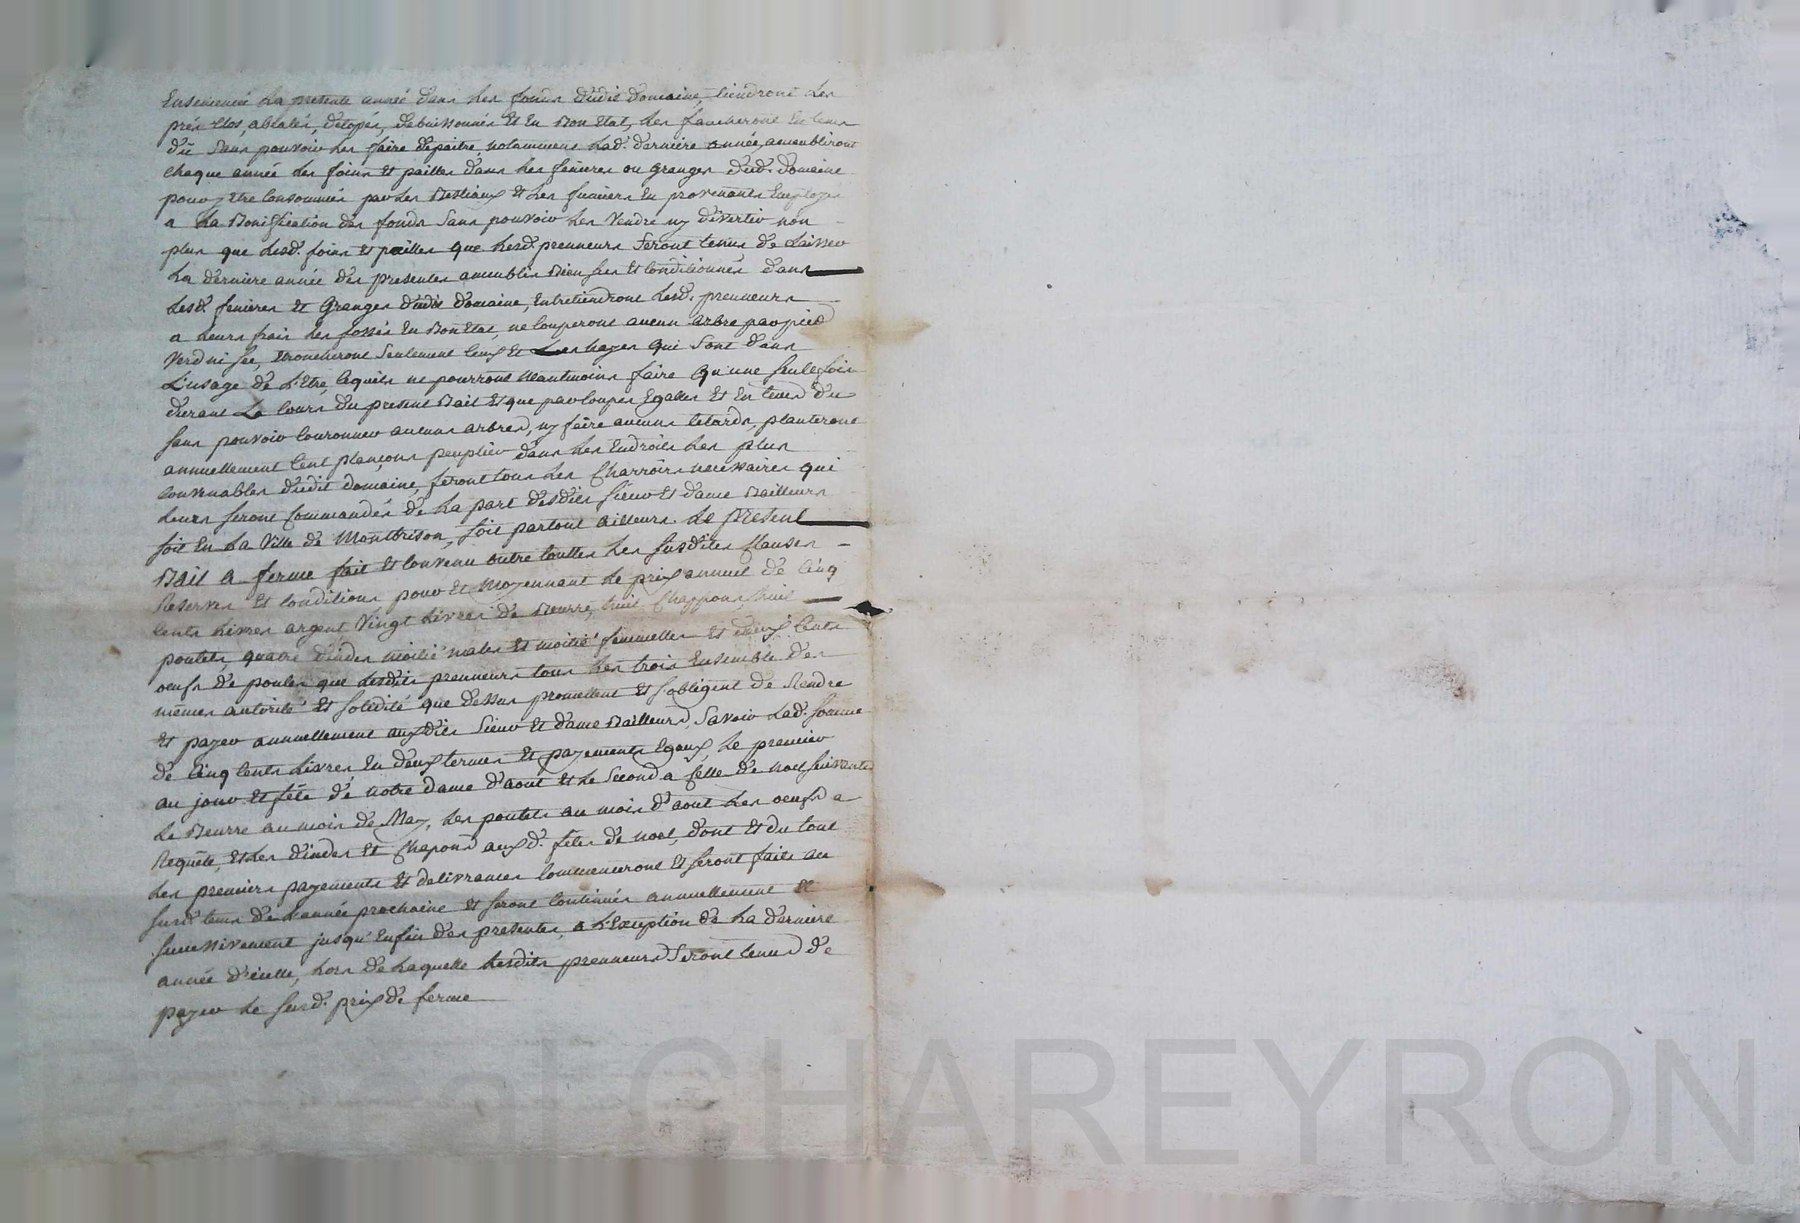 Ensemencé La presente année dans Les fonds dudit Domaine, tiendront Les
prés Clos, détopés, debuissonnés Et En Bon Etat, Les faucheront En tems
dû sans pouvoir Les faire dépaitre notamment Lad. derniere année, ameubliront
chaque année Les foins et pailles dans Les fenieres ou granges dud. Domaine
pour y Etre Consommés par Les Bestiaux Et Les fumiers En provenants Employés
a La Bonification des fonds sans pouvoir Les Vendre ny divertir non
plus que Lesd. foins Et pailles que Lesd. preneurs seront tenus de Laisser
La derniere année des presentes ameublis Bien secs Et Conditionnés dans
Lesd. fenieres et Granges dudit Domaine, Entretiendront Lesd. preneurs
a Leurs frais Les fossés En Bon Etat, ne Couperont aucun arbre par pied
Verd ni sec, Ebrancheront seulement Ceux Et Les hayes qui sont dans
L'usage de L'Etre, Cequils ne pourront Neantmoins faire Qu'une seule fois
durant Le Cours du present Bail Et que par Coupes Egalles Et En tems dû
sans pouvoir Couronner aucuns arbres, ny faire aucuns tetards, planteront
annuellement Cent plançons peuplier dans Les Endroits Les plus
Convenables dudit Domaine, feront tous Les Charrois necessaires qui
Leurs seront Commandés de La part desdits sieur Et dame Bailleurs
soit En La Ville de Montbrison, soit partout ailleurs Le present
Bail a ferme fait Et Convenu outre touttes Les susdites Clauses
Reserves Et Conditions pour Et Moyennant Le prix annuel de Cinq
Cents Livres argent Vingt Livres de Beurre, huit Chappons, huit
poulets, quatre dindes moitié males Et moitié femmelles Et deux Cents
oeufs de poules que Lesdits preneurs tous Les trois Ensemble des
mêmes autorité Et solidité que dessus promettent Et s'obligent de Rendre
Et payer annuellement auxdits Sieur Et dame Bailleurs, Savoir Lad. somme
de Cinq Cents Livres En deux termes Et payements Egaux, Le premier
au jour Et fête de notre Dame d'aout Et Le Second a fette de noel suivante
Le Beurre au mois de May, Les poulets au mois d'aout Les oeufs a
Requête, Et Les dindes Et Chapons aux d. fetes de noel, dont Et du tout
Les premiers payements Et delivrances Commenceront Et seront faits au
susd. tems de L'année prochaine Et seront Continués annuellement Et
successivement jusqu'Enfin des presentes, a L'Exception de La derniere
année d'icelle, Lors de Laquelle Lesdits preneurs Seront tenus de
payer Le susd. prix de ferme
Pascal CHAREYRON